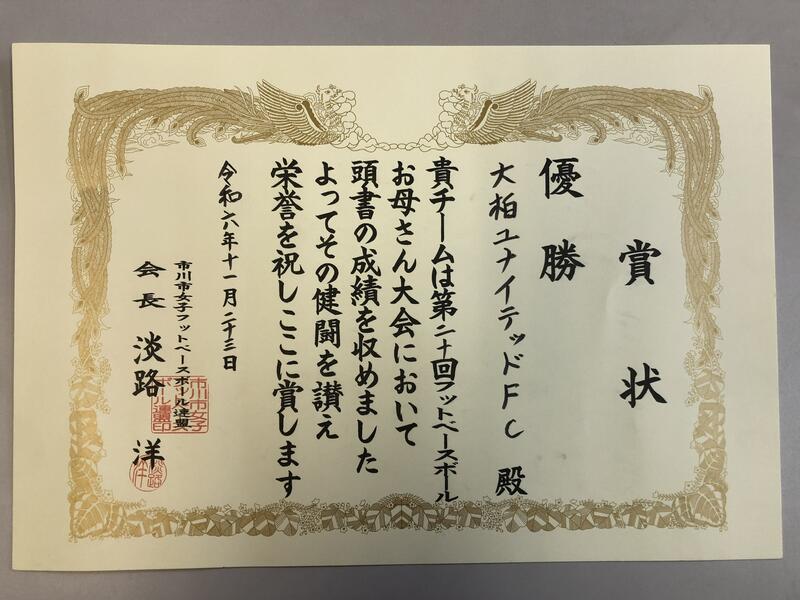 賞状
優勝
大柏ユナイテッドFC 殿
貴チームは第二十回フットベースボール
お母さん大会において
頭書の成績を収めました
よってその健闘を讃え
栄誉を祝しここに賞します
令和六年十一月二十三日
市川市女子フットベースボール連盟
会長 淡路 洋
市川市女子